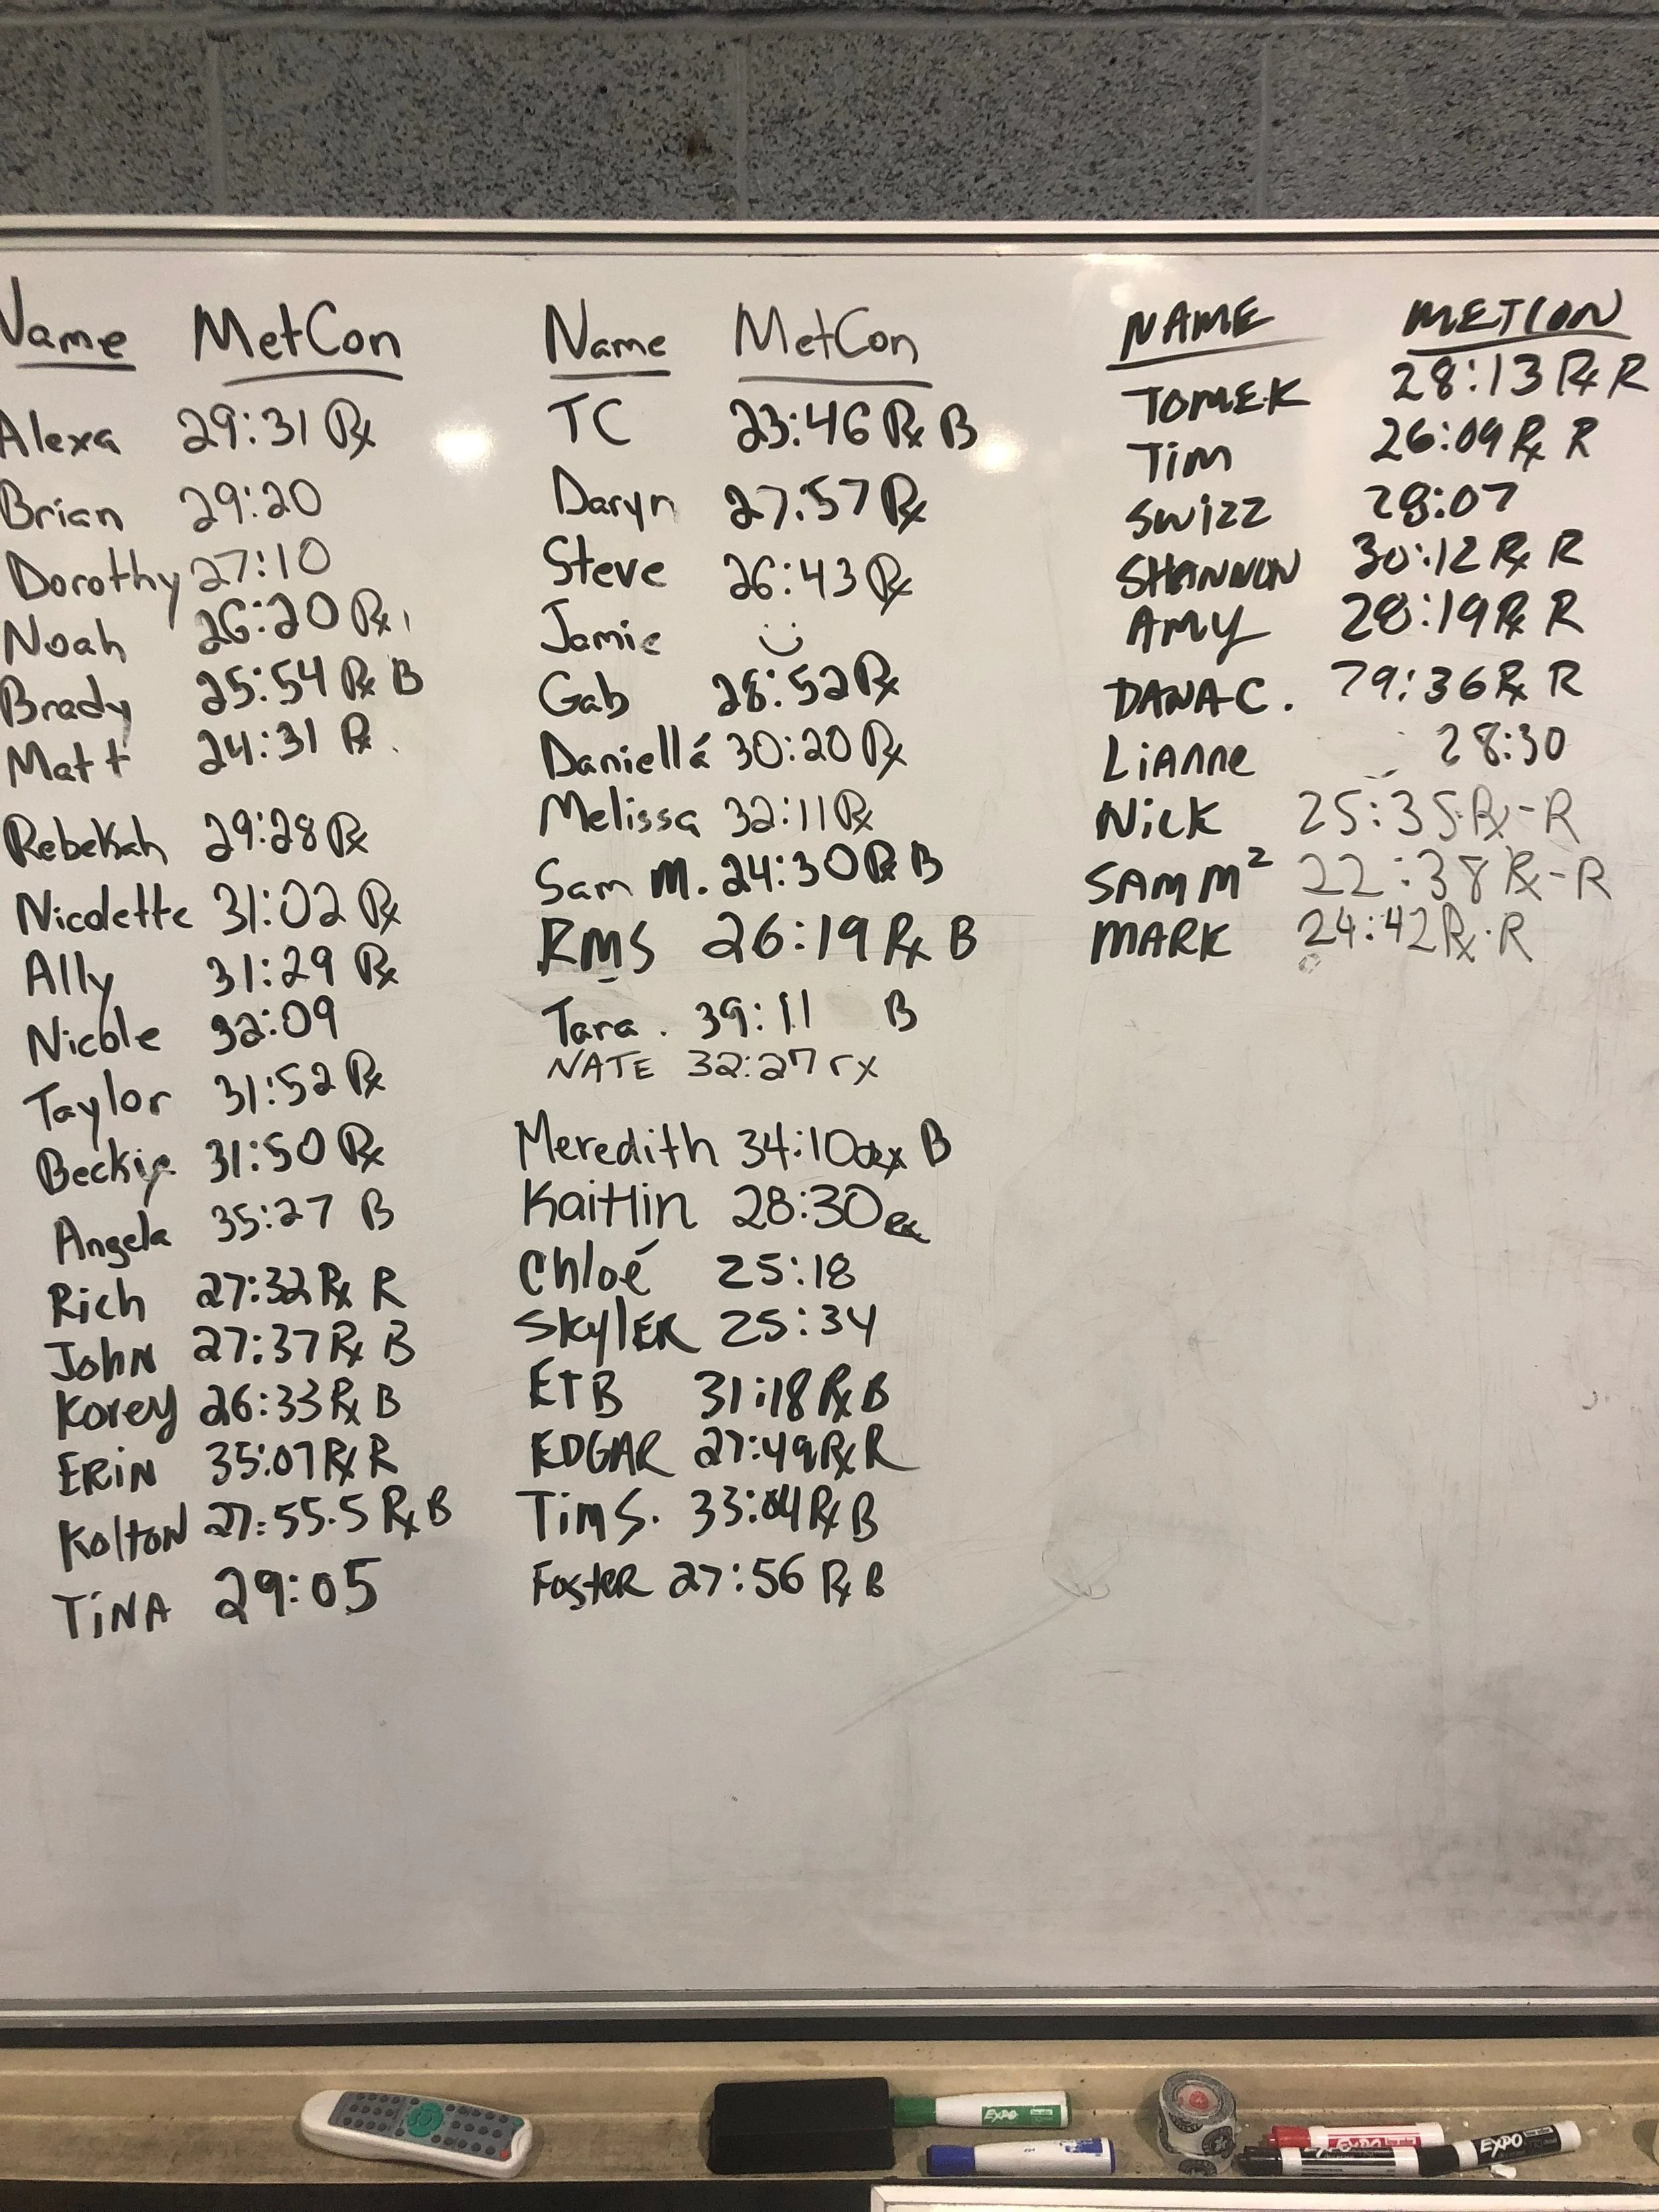 Name MetCon
Alexa 29:31 Rx
Brian 29:20
Dorothy 27:10
Noah 26:20 Rx
Brady 25:54 Rx B
Matt 24:31 Rx
Rebekah 29:28 Rx
Nicolette 31:02 Rx
Ally 31:29 Rx
Nicole 32:09
Taylor 31:52 Rx
Beckie 31:50 Rx
Angela 35:27 B
Rich 27:32 Rx R
John 27:37 Rx B
Korey 26:33 Rx B
ERiN 35:07 Rx R
KoltoN 27:55.5 Rx B
TiNA 29:05
Name MetCon
TC 23:46 Rx B
Daryn 27:57 Rx
Steve 26:43 Rx
Jamie
Gab 28:52 Rx
Daniella 30:20 Rx
Melissa 32:11 Rx
Sam M. 24:30 Rx B
RMS 26:19 Rx B
Tara . 39:11 B
NATE 32:27 rx
Meredith 34:10 B
Kaitlin 28:30
Chloé 25:18
SkylER 25:34
ETB 31:18 Rx B
EDGAR 27:49 Rx R
Tim S. 33:04 Rx B
FosteR 27:56 Rx B
NAME METCON
TOMEK 28:13 Rx R
Tim 26:09 Rx R
SWIZZ 28:07
SHANNON 30:12 Rx R
AMY 28:19 Rx R
DANA C. 29:36 Rx R
LiAnne 28:30
NiCK 25:35 Rx-R
SAM M² 22:38 Rx-R
MARK 24:42 Rx-R
EXPO
EXPO
EXPO
EXPO